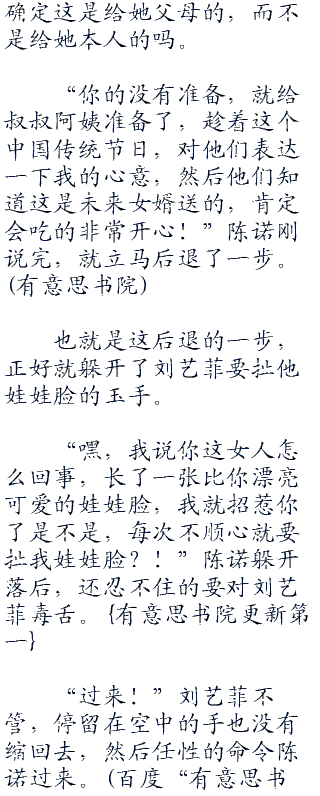 确定这是给她父母的，而不
是给她本人的吗。
“你的没有准备，就给
叔叔阿姨准备了，趁着这个
中国传统节日，对他们表达
一下我的心意，然后他们知
道这是未来女婿送的，肯定
会吃的非常开心！”陈诺刚
说完，就立马后退了一步。
(有意思书院)
也就是这后退的一步，
正好就躲开了刘艺菲要扯他
娃娃脸的玉手。
“嘿，我说你这女人怎
么回事，长了一张比你漂亮
可爱的娃娃脸，我就招惹你
了是不是，每次不顺心就要
扯我娃娃脸？！”陈诺躲开
落后，还忍不住的要对刘艺
菲毒舌。{有意思书院更新第
一}
“过来！”刘艺菲不
管，停留在空中的手也没有
缩回去，然后任性的命令陈
诺过来。(百度“有意思书